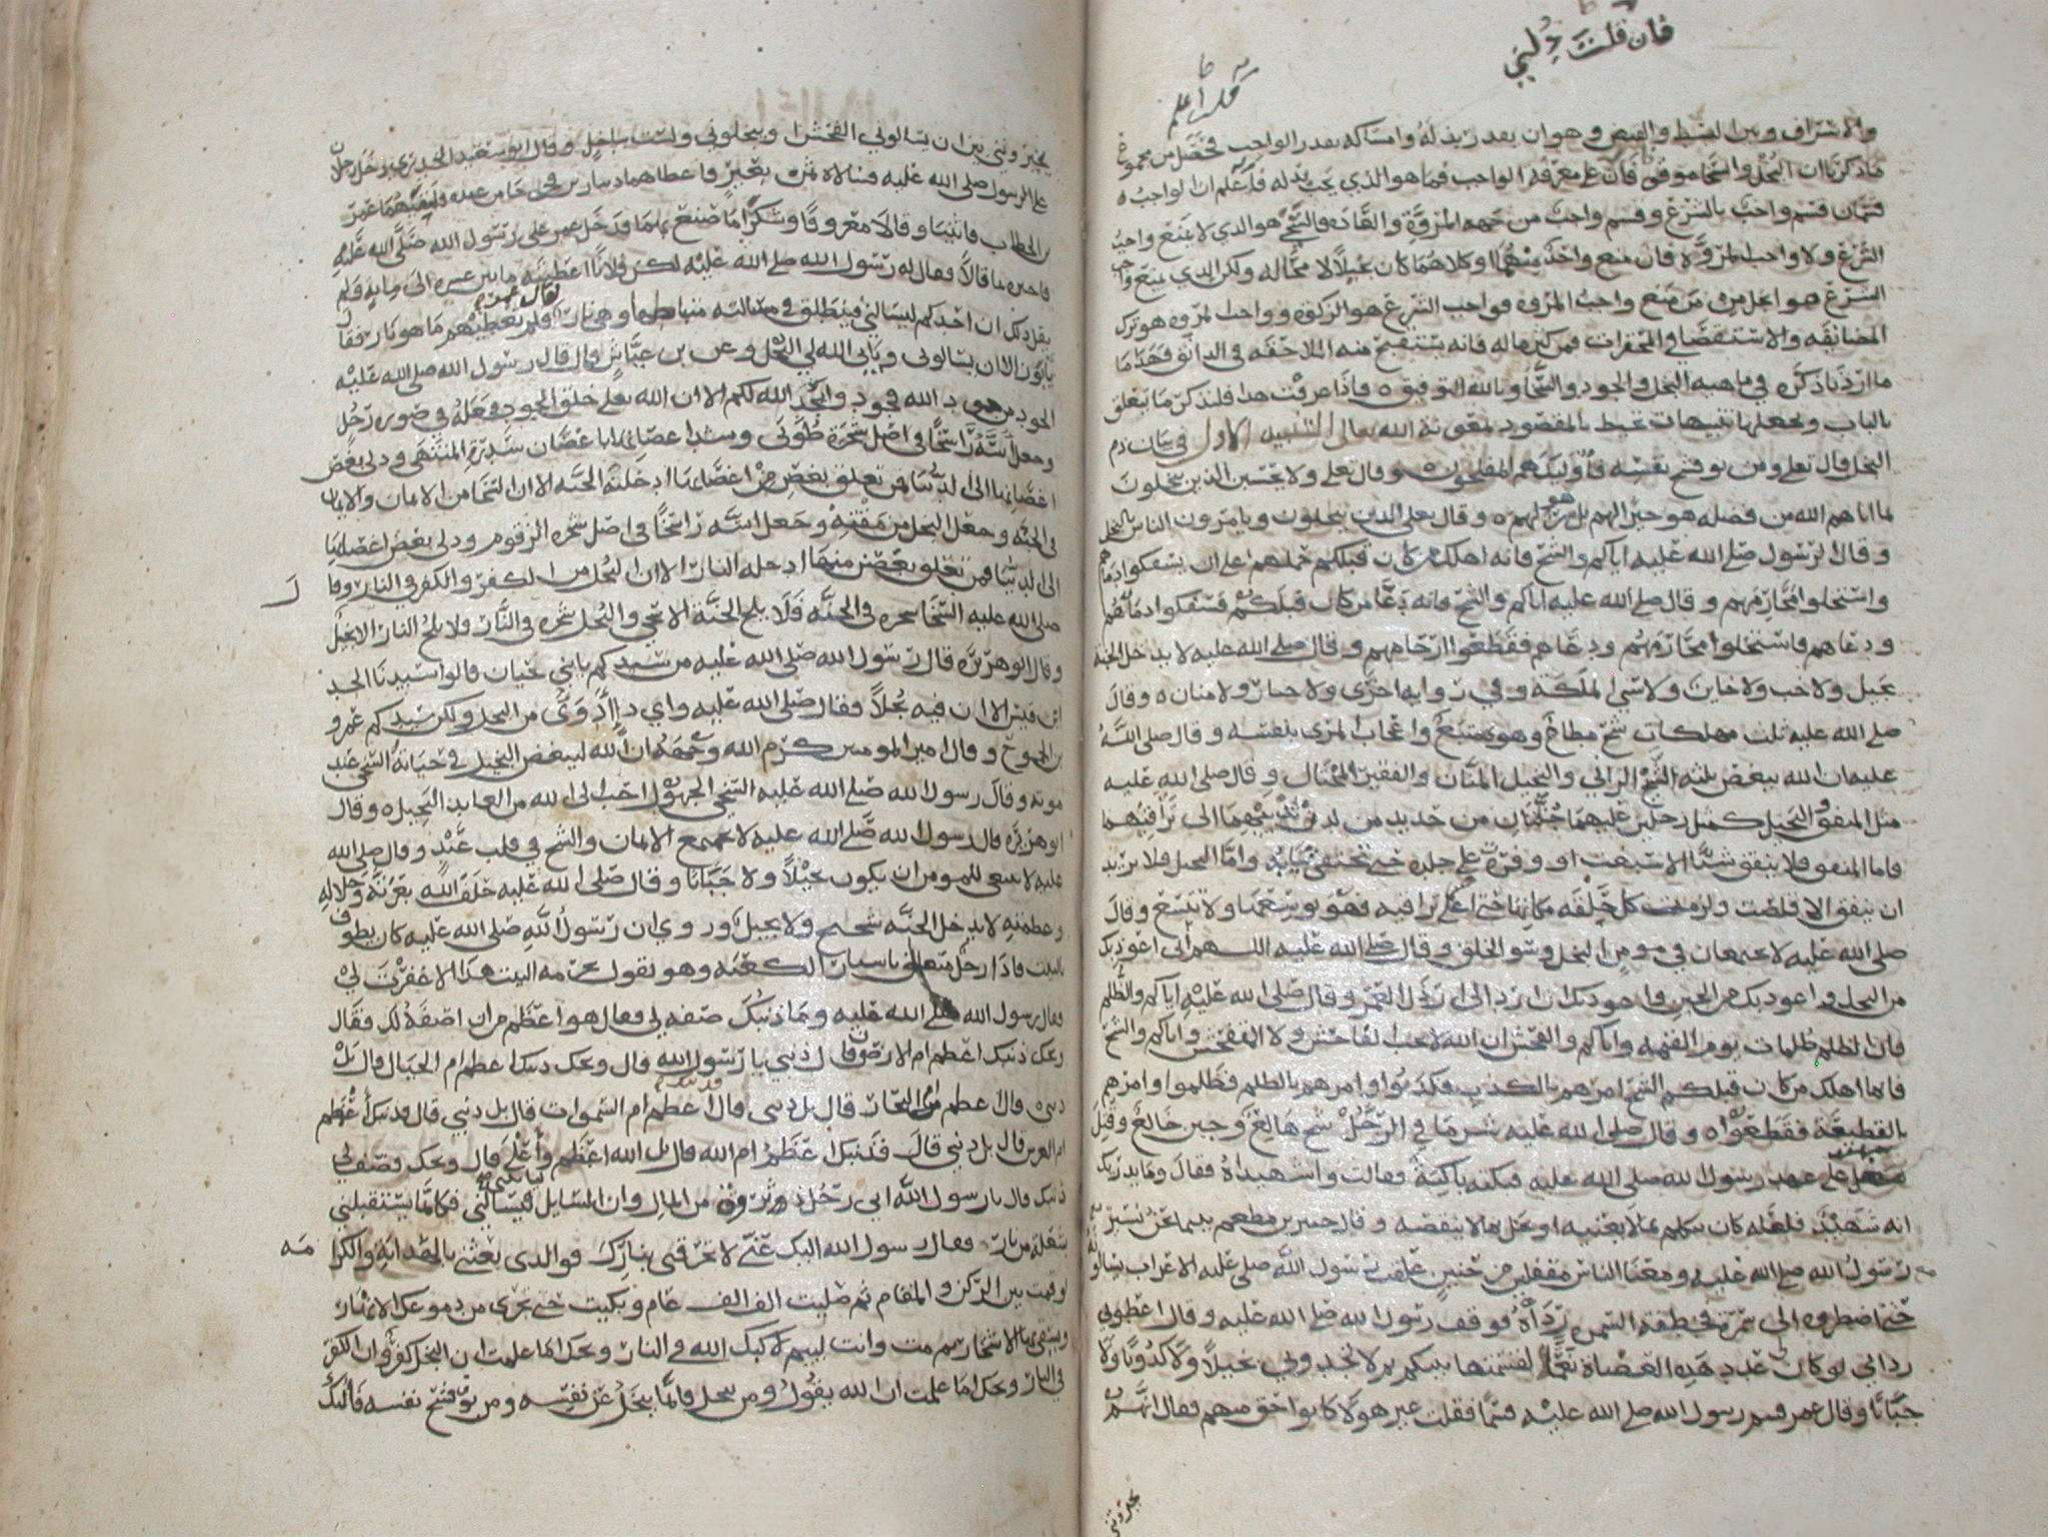 فان قلت دلني
قلت اعلم
والاشراف وبين البسط والقبض وهو ان يقدر بذله وامساكه بقدر الواجب فحصل من مجموع
ما ذكرنا ان البخل والسخا موقوفان على معرفة الواجب فما هو الذي يجب بذله فاعلم ان الواجب
قسمان قسم واجب بالشرع وقسم واجب من جهه المروة والعاده فالسخي هو الذي لا يمنع واجب
الشرع ولا واجب المروة فان منع واحدا منهما او كلاهما كان بخيلا لا محاله ولكن الذي يمنع واجب
الشرع هو ابخل ممن منع واجب المروه فواجب الشرع هو الزكوة وواجب المروه هو ترك
المضايقه والاستقصا في المحقرات فمن كثر ماله فانه يستقبح منه الملاحقه في الدانق فهذا ما
ما اردنا ذكره في ماهيه البخل والجود والسخا وبالله التوفيق ه فاذا عرفت هذا فلنذكر ما يتعلق
بالباب ونجعلها تنبيهات تحيط بالمقصود بمعونة الله تعالى التنبيه الاول في بيان ذم
البخل قال تعلى ومن يوق شح نفسه فاولئك هم المفلحون وقال تعلى ولا يحسبن الذين يبخلون
بما اتاهم الله من فضله هو خيرا لهم بل هو شر لهم ه وقال تعلى الذين يبخلون ويامرون الناس بالبخل
وقال الرسول صلى الله عليه اياكم والشح فانه اهلك من كان قبلكم حملهم على ان يسفكوا دماهم
واستحلوا محارمهم وقال صلى الله عليه اياكم والشح فانه دعا من كان قبلكم فسفكوا دماهم
ودعاهم فاستحلوا محارمهم ودعاهم فقطعوا ارحامهم وقال صلى الله عليه لا يدخل الجنة
بخيل ولا خب ولا خاين ولا سي الملكة وفي روايه اخرى ولا جبار ولا منان ه وقال
صلى الله عليه ثلث مهلكات شح مطاع وهوى متبع واعجاب المرء بنفسه وقال صلى الله
عليه ان الله يبغض ثلثه الشيخ الزاني والبخيل المنان والفقير المختال وقال صلى الله عليه
مثل المنفق والبخيل كمثل رجلين عليهما جبتان من حديد من لدن ثديهما الى تراقيهما
فاما المنفق فلا ينفق شيا الا سبغت او وفرت على جلده حتى تخفي بنانه واما البخيل فلا يريد
ان ينفق الا قلصت ولزمت كل حلقه مكانها حتى اخذت تراقيه فهو يوسعها ولا تتسع وقال
صلى الله عليه لا يجتمعان في مومن البخل وسو الخلق وقال صلى الله عليه اللهم اني اعوذ بك
من البخل واعوذ بك من الجبن واعوذ بك ان ارد الى ارذل العمر وقال صلى الله عليه اياكم والظلم
فان الظلم ظلمات يوم القيمه واياكم والفحش ان الله لا يحب الفاحش ولا المتفحش واياكم والشح
فانما اهلك من كان قبلكم الشح امرهم بالكذب فكذبوا وامرهم بالظلم فظلموا وامرهم
بالقطيعة فقطعوا ه وقال صلى الله عليه شر ما في الرجل شح هالع وجبن خالع وقتل
على عهد رسول الله صلى الله عليه فبكته باكية فقالت واشهيداه فقال وما يدريك
انه شهيد فلعله كان يتكلم بما لا يعنيه او يبخل بما لا ينقصه وقال جبير بن مطعم بينما نحن نسير
رسول الله صلى الله عليه ومعنا الناس مقفلين من حنين علقت برسول الله صلى عليه الاعراب يسالونه
حتى اضطروه الى سمرة فخطفت السمره رداءه فوقف رسول الله صلى الله عليه وقال اعطوني
ردائي لو كان لي عدد هذه العضاة نعما لقسمتها بينكم ثم لا تجدوني بخيلا ولا كذوبا ولا
جبانا وقال عمر قسم رسول الله صلى الله عليه قسما فقلت غير هولا كانوا احق منهم فقال انهم
يخيرونني
يخيرونني بين ان يسالوني بالفحش او يبخلوني ولست بباخل وقال ابو سعيد الخدري دخل رجلان
على الرسول صلى الله عليه فسالاه ثمن بعير فاعطاهما دينارين فخرجا من عنده فلقيهما عمر
بن الخطاب فاثنيا وقالا معروفا وشكرا ما صنع بهما فدخل عمر على رسول الله صلى الله عليه
فاخبره بما قالا فقال له رسول الله صلى الله عليه لكن فلانا اعطيته ما بين عشره الى مايه فلم
يقل ذلك ان احدكم ليسالني فينطلق في مسالته متابطها وهي نار فقال عمر فلم تعطيهم ما هو نار فقال
يابون الا ان يسالوني ويابى الله لي البخل وعن بن عباس قال قال رسول الله صلى الله عليه
الجود من جود الله فجودوا يجد الله لكم الا ان الله تعلى خلق الجود فجعله في صوره رجل
وجعل اسه راسخا في اصل شجرة طوبى وشد اغصانها باغصان سدرة المنتهى ودلى بعض
اغصانها الى الدنيا فمن تعلق بغصن من اغصانها ادخلته الجنه الا ان السخا من الايمان والايمان
في الجنه وخلق البخل من مقته وجعل اسه راسخا في اصل شجره الزقوم ودلى بعض اغصانها
الى الدنيا فمن تعلق بغصن منها ادخله النار الا ان البخل من الكفر والكفر في النار وقال
صلى الله عليه السخا شجره في الجنه فلا يلج الجنة الا سخي والبخل شجره في النار ولا يلج النار الا بخيل
وقال ابو هريره قال رسول الله صلى الله عليه من سيدكم يا بني لحيان قالوا سيدنا الجد
ابن قيس الا ان فيه بخلا فقال صلى الله عليه واي داء ادوى من البخل ولكن سيدكم عمرو
بن الجموح وقال امير المومنين كرم الله وجهه ان الله ليبغض البخيل في حياته السخي عند
موته وقال رسول الله صلى الله عليه السخي الجهول احب الى الله من العابد البخيل ه وقال
ابو هريره قال رسول الله صلى الله عليه لا يجتمع الايمان والشح في قلب عبد وقال صلى الله
عليه لا ينبغي للمومن ان يكون بخيلا ولا جبانا وقال صلى الله عليه حلف الله بعزته وجلاله
وعظمته لا يدخل الجنه شحيح ولا بخيل وروي ان رسول الله صلى الله عليه كان يطوف
بالبيت فاذا رجل متعلق باستار الكعبه وهو يقول بحرمه البيت هذا الا غفرت لي
فقال رسول الله صلى الله عليه وما ذنبك صفه لي فقال هو اعظم من ان اصفه لك فقال
ويحك ذنبك اعظم ام الارضون قال ذنبي يا رسول الله قال ويحك ذنبك اعظم ام الجبال قال بل
ذنبي قال اعظم ام البحار قال بل ذنبي قال فذنبك اعظم ام السموات قال بل ذنبي قال فذنبك اعظم
ام العرش قال بل ذنبي قال فذنبك اعظم ام الله قال بل الله اعظم واعلى قال ويحك فصف لي
ذنبك قال يا رسول الله اني رجل ذو ثروة من المال وان السايل ليأتيني فيسالني فكانما يستقبلني
بشعلة من نار فقال رسول الله اليك عني لا تحرقني بنارك فو الذي بعثني بالهداية والكرامه
لو قمت بين الركن والمقام ثم صليت الف الف عام وبكيت حتى تجري من دموعك الانهار
ويسقى بها الاشجار ثم مت وانت لييم لاكبك الله في النار ويحك اما علمت ان البخل كفر وان الكفر
في النار ويحك اما علمت ان الله يقول ومن يبخل فانما يبخل عن نفسه ومن يوق شح نفسه فاولئك